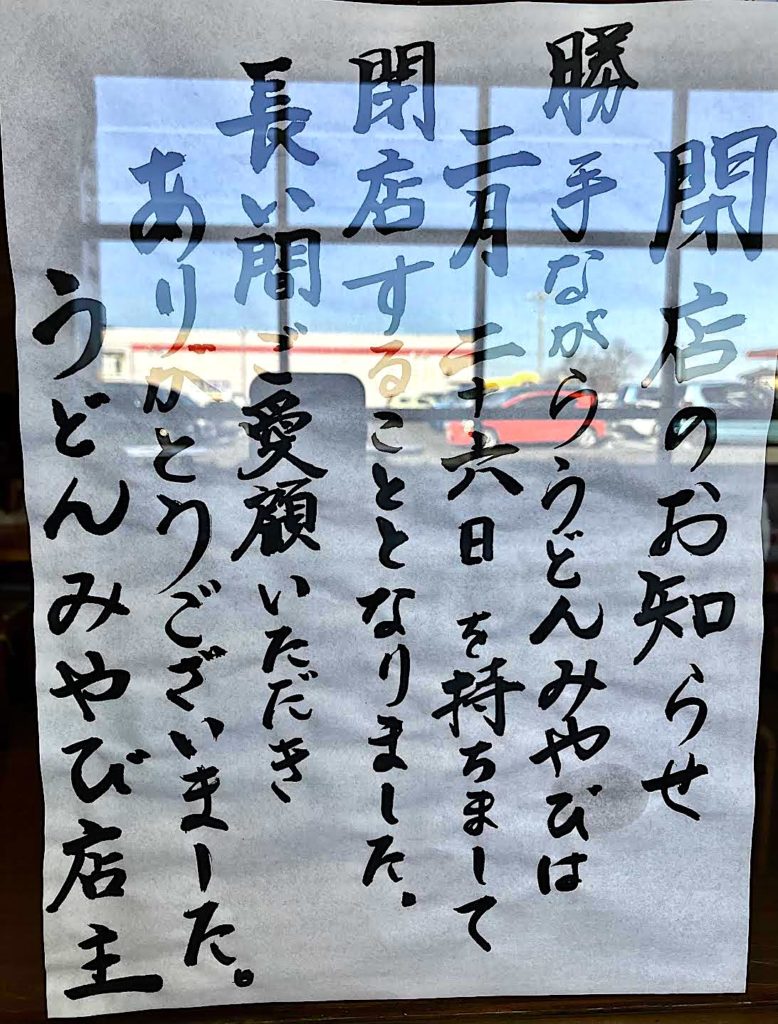 閉店のお知らせ
勝手ながらうどんみやびは
二月二十六日を持ちまして
閉店することとなりました。
長い間ご愛顧いただき
ありがとうございました。
うどんみやび店主